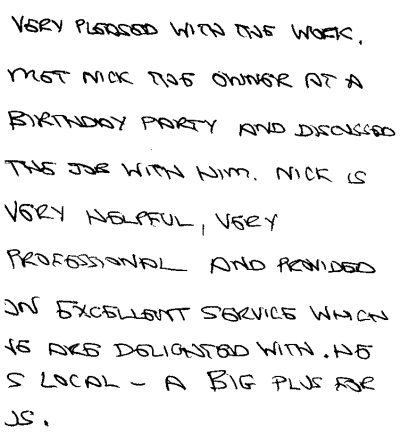 VERY PLEASED WITH THE WORK.
MET NICK THE OWNER AT A
BIRTHDAY PARTY AND DISCUSSED
THE JOB WITH HIM. NICK IS
VERY HELPFUL, VERY
PROFESSIONAL AND PROVIDED
AN EXCELLENT SERVICE WHICH
WE ARE DELIGHTED WITH. HE
IS LOCAL - A BIG PLUS FOR
US.